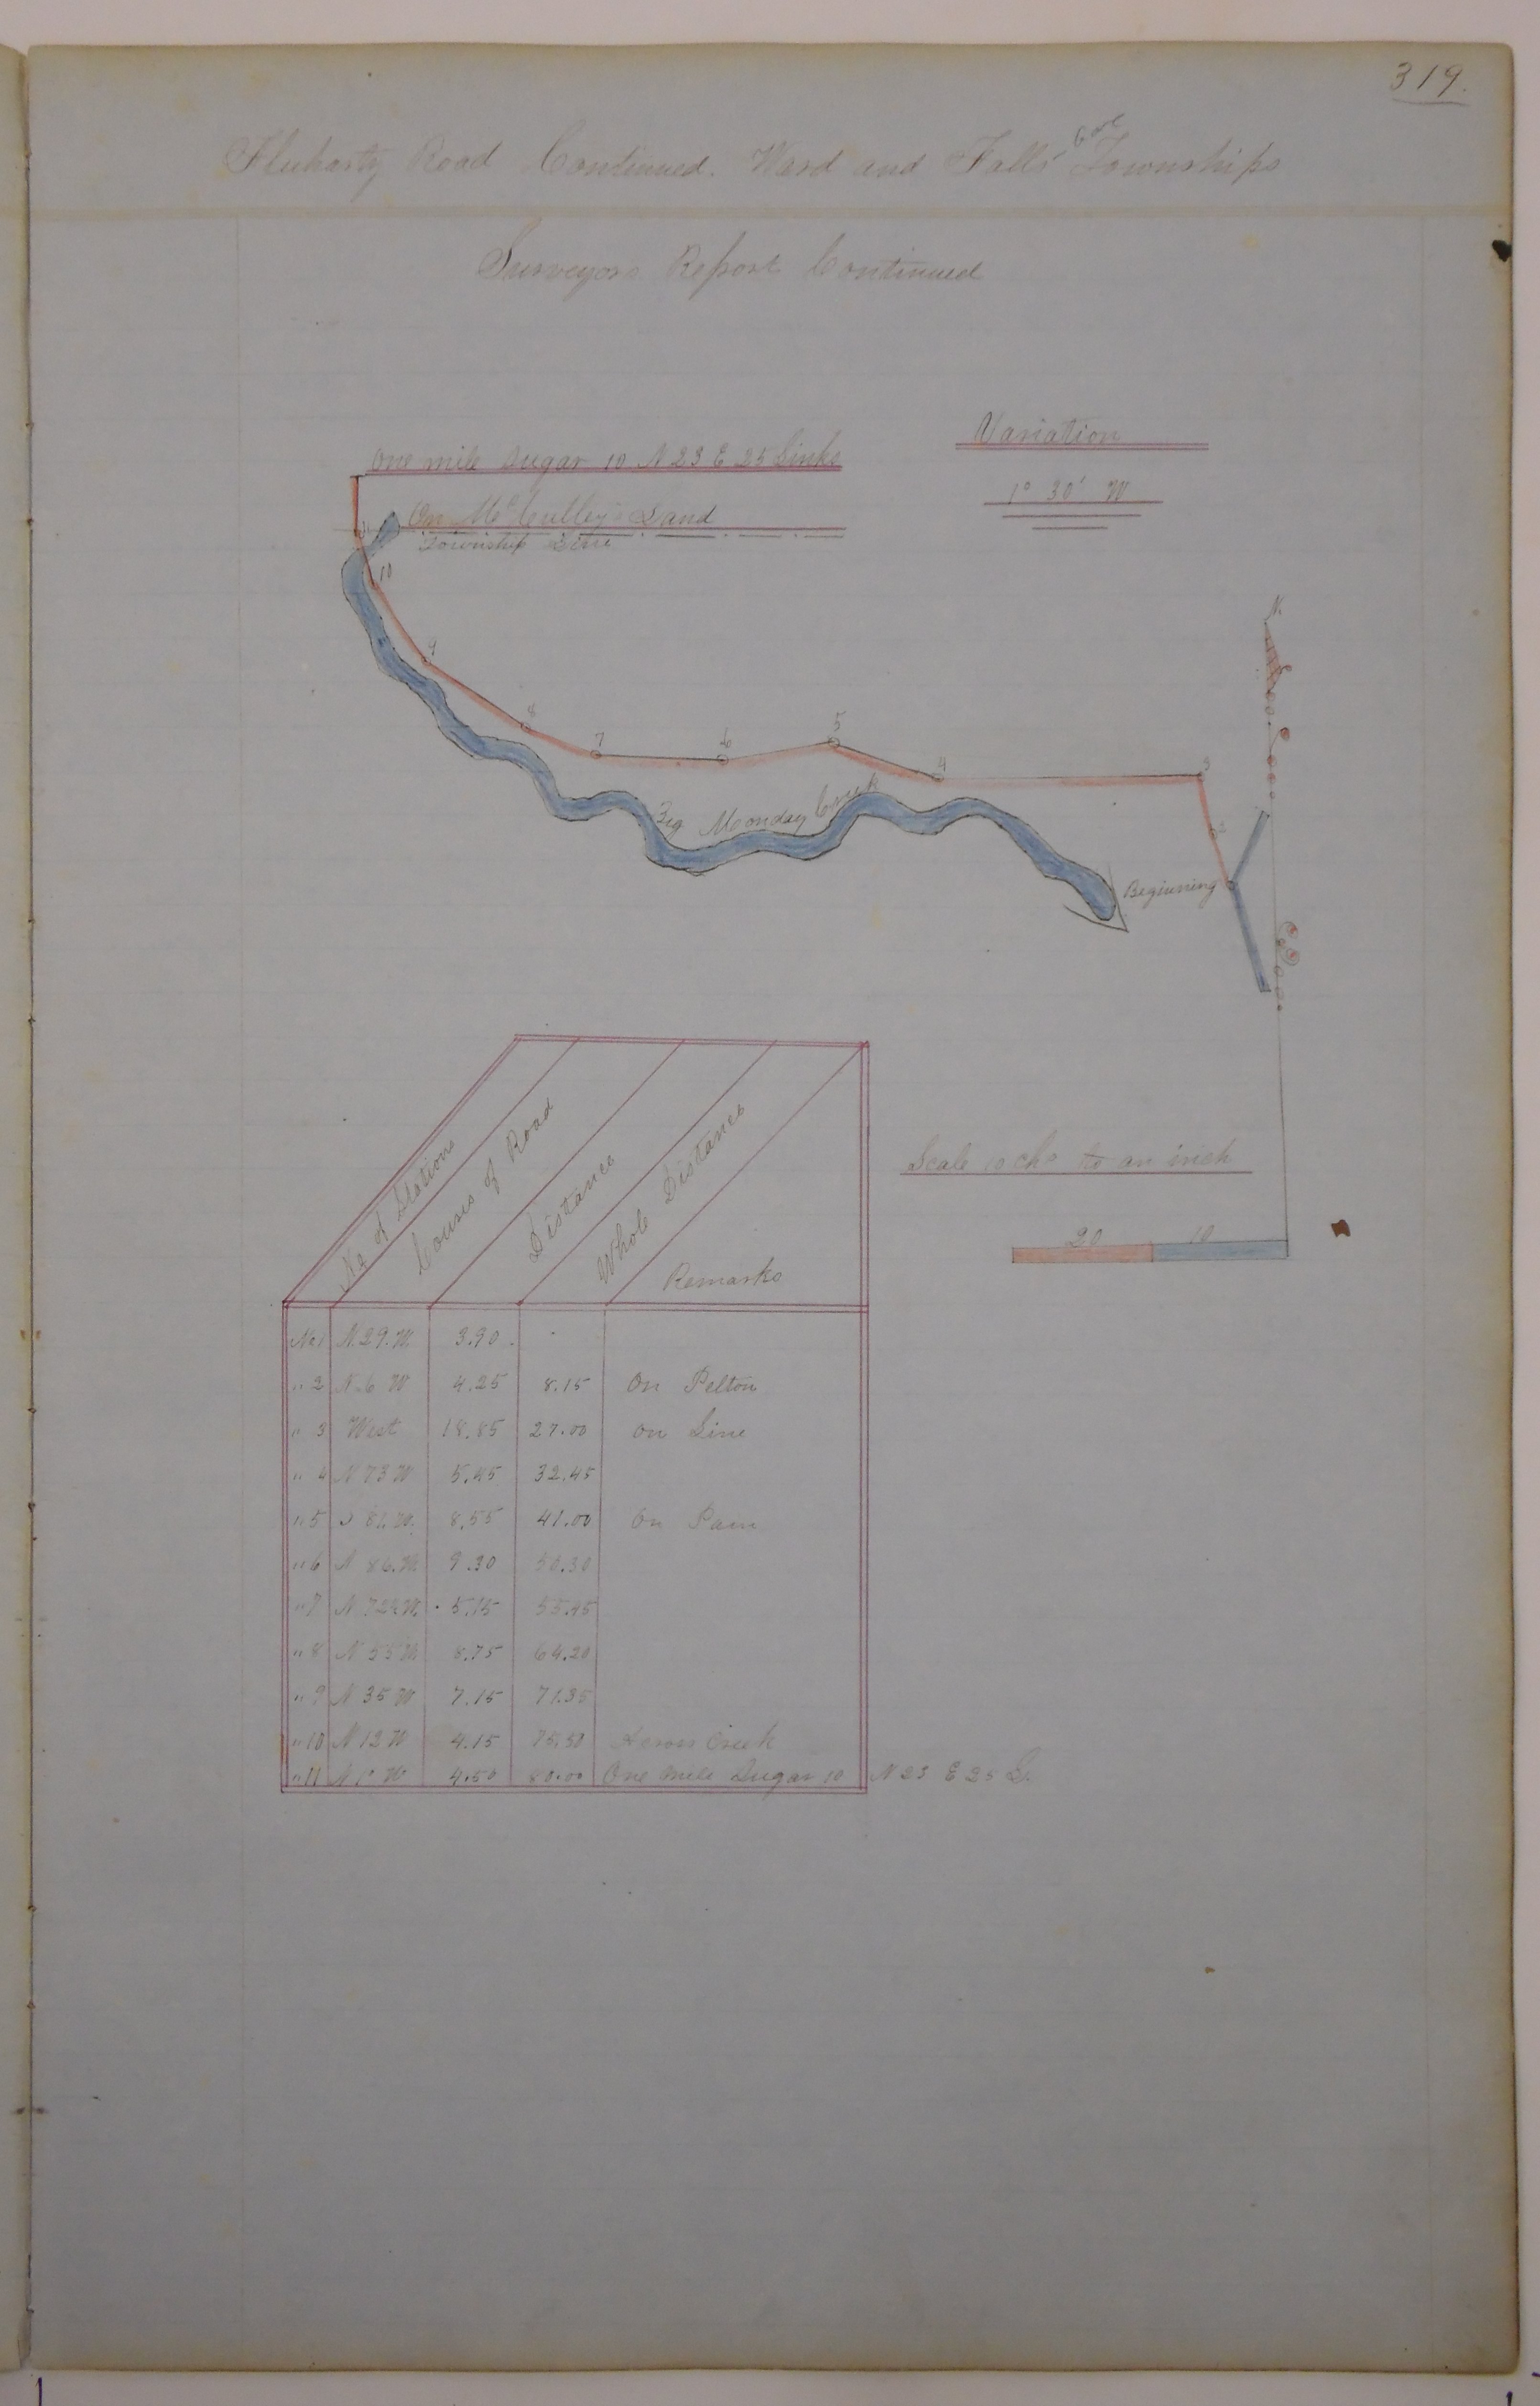 319.
Gore
Fluharty Road Continued. Ward and Falls Townships
Surveyors Report Continued
Variation
1° 30' W
One mile Sugar 10 N 23 E 25 Links
On McCulley's Land
Township Line
11
10
9
8
7
6
5
4
3
2
N.
Big Monday Creek
Beginning
No of Stations
Course of Road
Distance
Whole Distance
Remarks
Scale 10 chs to an inch
20 10
No 1 N. 29. W. 3.90
" 2 N. 6 W 4.25 8.15 On Pelton
" 3 West 18.85 27.00 on Line
" 4 N 73 W 5.45 32.45
" 5 81. W. 8.55 41.00 On
" 6 N 86. W. 9.30 50.30
" 7 N W. 5.15 55.45
" 8 N 55 W 8.75 64.20
" 9 N 35 W 7.15 71.35
" 10 N 12 W 4.15 75.50 Across Creek
" 11 N 1° W 4.50 80.00 One mile Sugar 10 N 23 E 25 L.